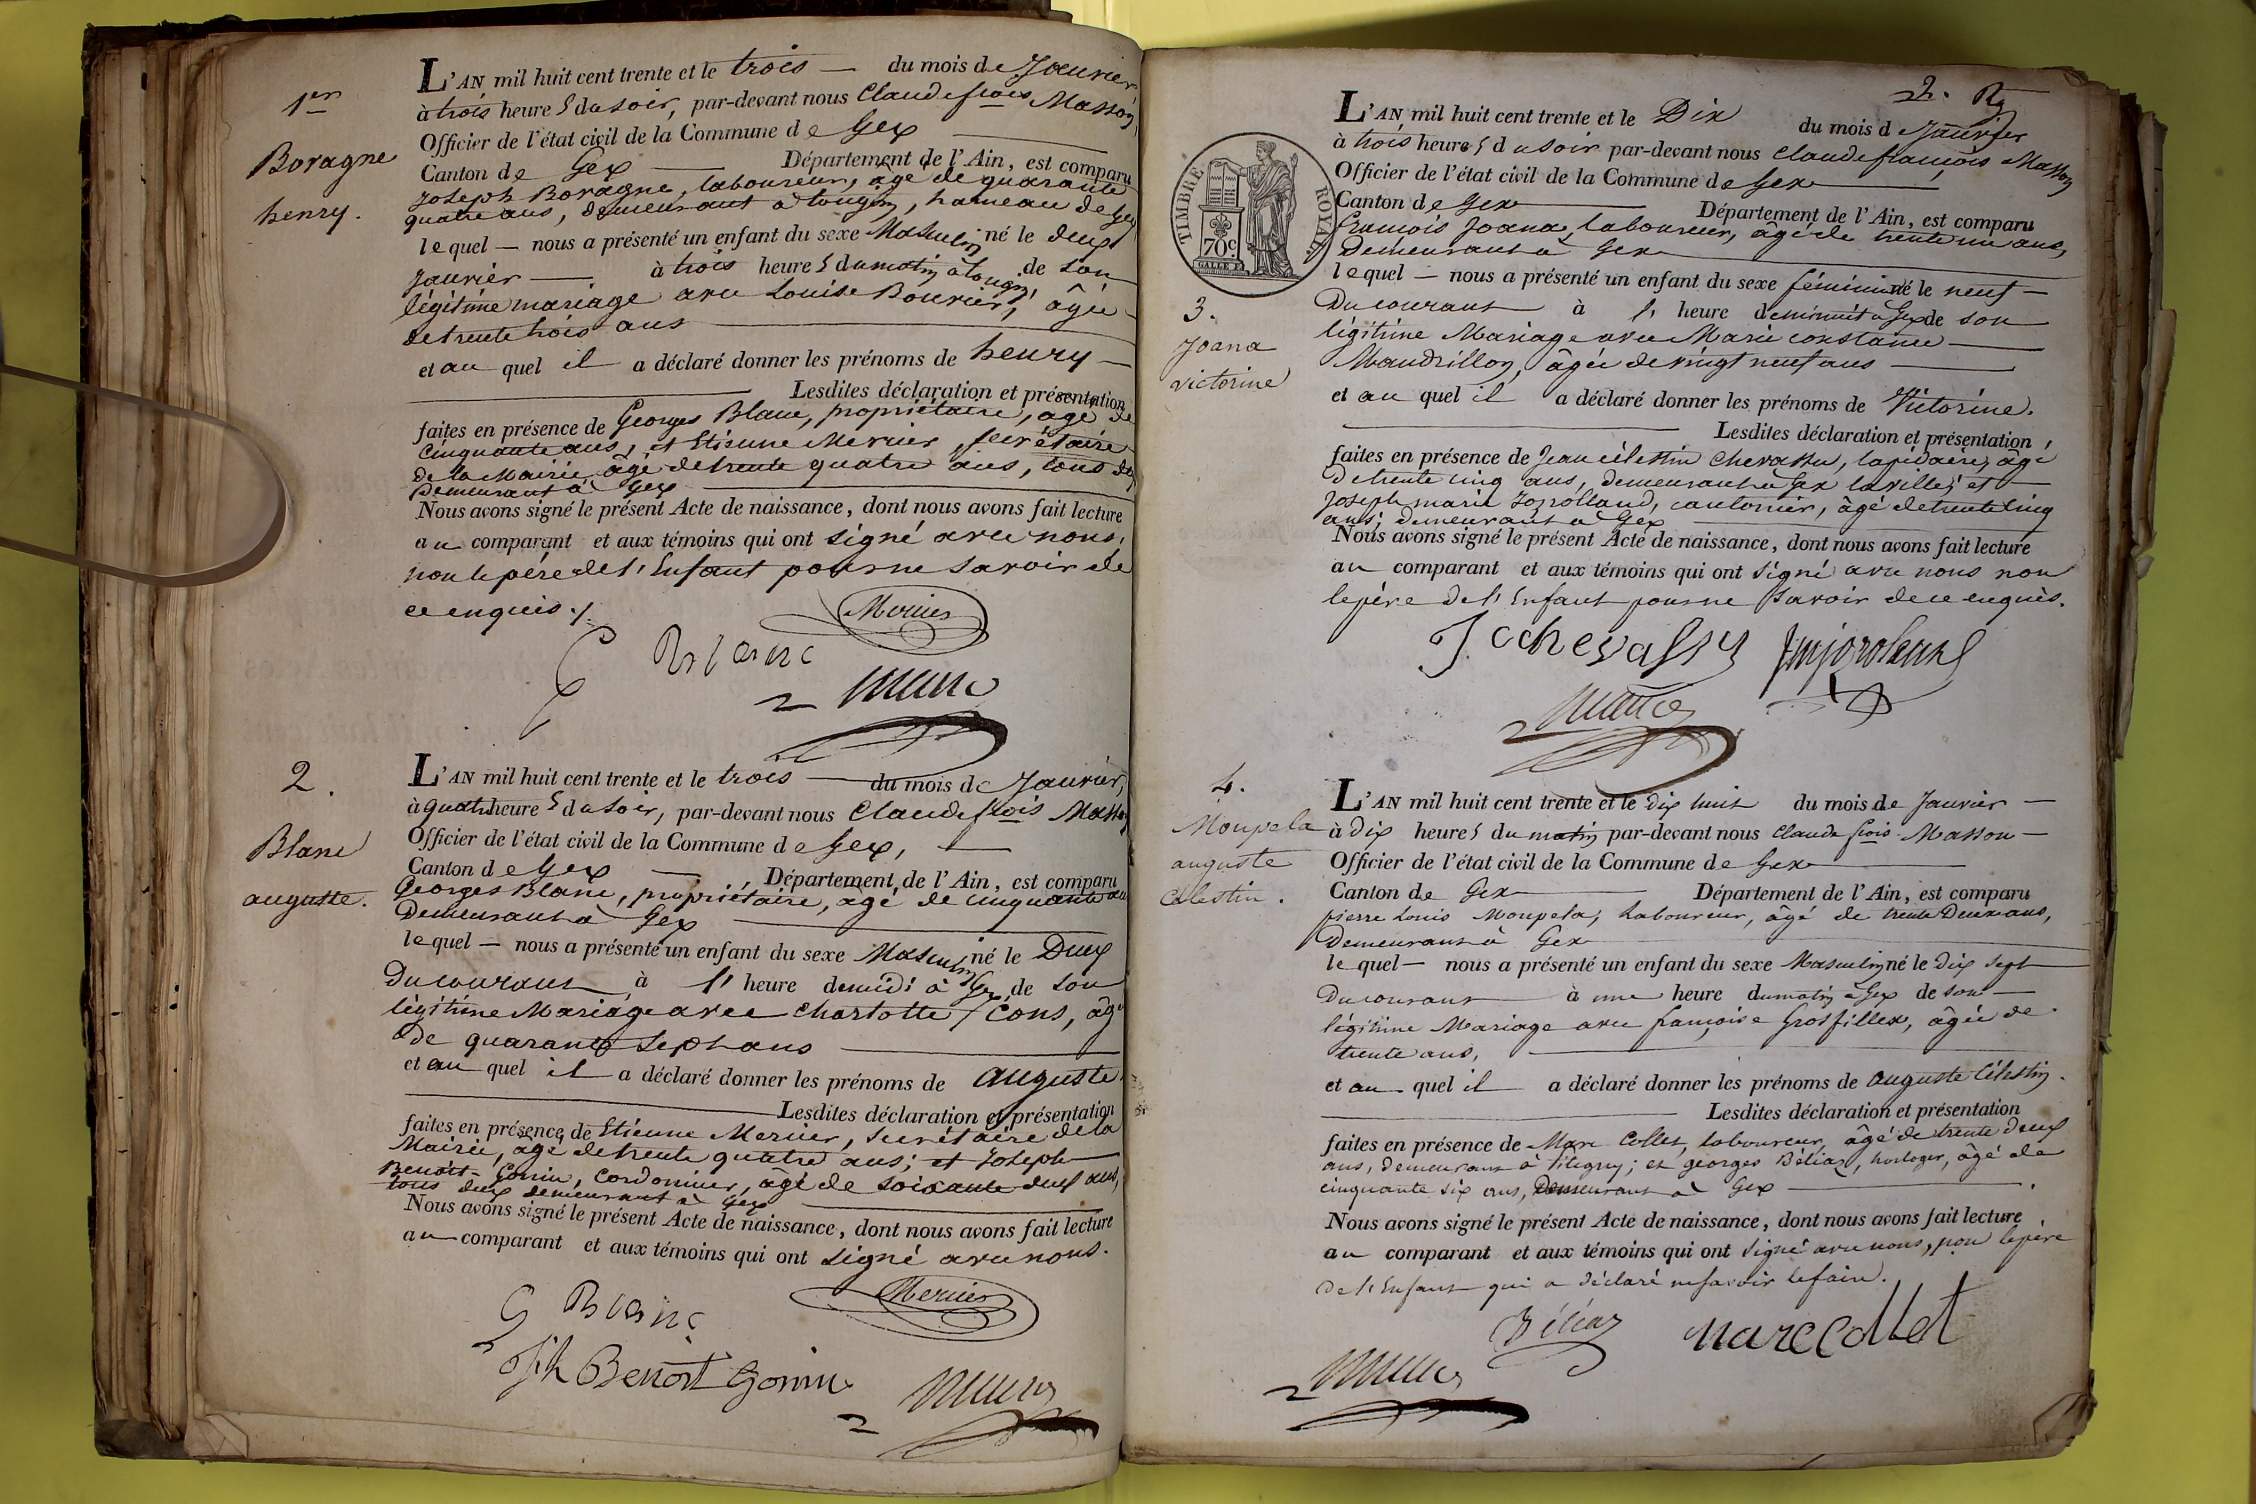 1er
Boragne
henry.
L'AN mil huit cent trente et le trois — du mois de Janvier
à trois heures du soir, par-devant nous Claude frois Masson,
Officier de l'état civil de la Commune de Gex
Canton de Gex — Département de l'Ain, est comparu
Joseph Boragne, laboureur, âgé de quarante
quatre ans, demeurant a tougin, hameau de Gex
lequel — nous a présenté un enfant du sexe Masculin né le deux
Janvier — à trois heures du matin à tougin, de son
légitime mariage avec Louise Bouvier, âgée
de trente trois ans
et au quel il a déclaré donner les prénoms de henry —
Lesdites déclaration et présentation
faites en présence de Georges Blanc, propriétaire, âgé de
cinquante ans, et Etienne Mercier, secrétaire
de la Mairie, âgé de trente quatre ans, tous deux
Demeurant à Gex
Nous avons signé le présent Acte de naissance, dont nous avons fait lecture
au comparant et aux témoins qui ont signé avec nous,
non le père de l'Enfant pour ne savoir de
ce enquis ./.
Mercier
G Blanc
2
Blanc
auguste.
L'AN mil huit cent trente et le trois — du mois de Janvier,
à quatre heures du soir, par-devant nous Claude frois Masson
Officier de l'état civil de la Commune de Gex,
Canton de Gex — Département de l'Ain, est comparu
Georges Blanc, propriétaire, âgé de cinquante ans
Demeurant à Gex
lequel — nous a présenté un enfant du sexe Masculin né le Deux
Du courant à l' heure de midi à Gex de son
légitime Mariage avec Charlotte Cons, âgée
de quarante sept ans
et au quel il a déclaré donner les prénoms de auguste.
Lesdites déclaration et présentation
faites en présence de Etienne Mercier, secrétaire de la
Mairie, âgé de trente quatre ans; et Joseph
Benoit Gonin, Cordonnier, âgé de soixante deux ans,
tous deux demeurant à Gex
Nous avons signé le présent Acte de naissance, dont nous avons fait lecture
au comparant et aux témoins qui ont signé avec nous.
Mercier
G Blanc
Jph Benoit Gonin
2.
TIMBRE ROYAL
70c
GALLE
3.
Joana
victorine
L'AN mil huit cent trente et le Dix du mois d Janvier
à trois heures du soir par-devant nous Claude françois Masson
Officier de l'état civil de la Commune de Gex
Canton de Gex Département de l'Ain, est comparu
François Joana, laboureur, âgé de trente un ans,
Demeurant à Gex
lequel — nous a présenté un enfant du sexe féminin né le neuf —
Du courant à l' heure de minuit à Gex de son
légitime Mariage avec Marie constance
Maudrillon, âgée de vingt neuf ans
et au quel il a déclaré donner les prénoms de Victorine.
Lesdites déclaration et présentation,
faites en présence de Jean célestin Chevassu, lapidaire, âgé
De trente cinq ans, demeurant à Gex la ville; et
Joseph marie Jorolland, cantonier, âgé de trente cinq
ans; demeurant à Gex
Nous avons signé le présent Acte de naissance, dont nous avons fait lecture
au comparant et aux témoins qui ont signé avec nous non
le père de l'Enfant pour ne savoir de ce enquis.
J. C chevassu jmjorolland
4.
Moupela
auguste
Célestin.
L'AN mil huit cent trente et le dix huit du mois de Janvier —
à Dix heures du matin par-devant nous Claude frois Masson —
Officier de l'état civil de la Commune de Gex
Canton de Gex Département de l'Ain, est comparu
pierre Louis Moupela, Laboureur, âgé de trente Deux ans,
Demeurant à Gex
lequel — nous a présenté un enfant du sexe Masculin né le dix sept
Du courant à une heure du matin à Gex de son —
légitime Mariage avec françoise Grosfillex, âgée de
trente ans,
et au quel il a déclaré donner les prénoms de auguste Célestin.
Lesdites déclaration et présentation
faites en présence de Marc Collet, laboureur, âgé de trente deux
ans, demeurant à Pitegny; et georges Béliaz, horloger, âgé de
cinquante six ans, Demeurant à Gex
Nous avons signé le présent Acte de naissance, dont nous avons fait lecture
au comparant et aux témoins qui ont signé avec nous, non le père
de l'Enfant qui a déclaré ne savoir le faire.
Béliaz marc collet